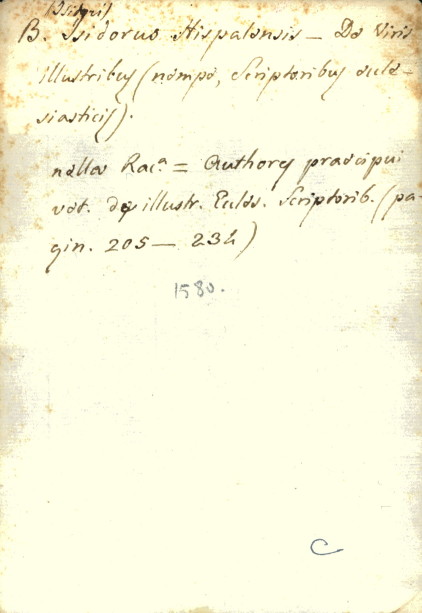 (Isidori)
B. Isidorus Hispalensis — De Viris
illustribus (nempe, Scriptoribus eccle-
siasticis).
nella Rac.a = Authores praecipui
vet. de illustr. Eccles. Scriptorib. (pa-
gin. 205 — 232)
1580.
C